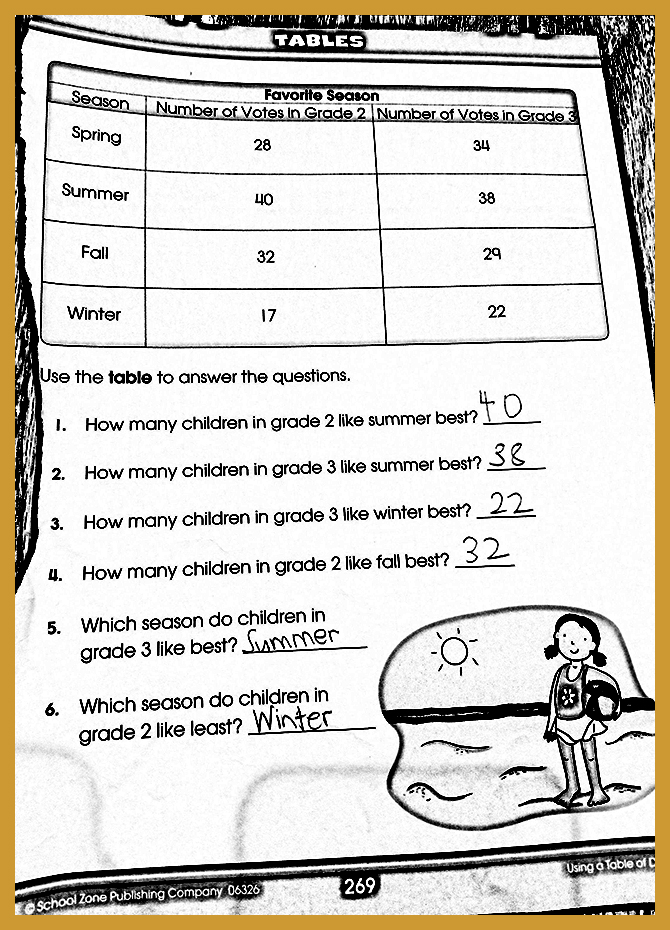 TABLES
Favorite Season
Season Number of Votes in Grade 2 Number of Votes in Grade 3
Spring 28 34
Summer 40 38
Fall 32 29
Winter 17 22
Use the table to answer the questions.
1. How many children in grade 2 like summer best? 40
2. How many children in grade 3 like summer best? 38
3. How many children in grade 3 like winter best? 22
4. How many children in grade 2 like fall best? 32
5. Which season do children in
grade 3 like best? Summer
6. Which season do children in
grade 2 like least? Winter
© School Zone Publishing Company 06326
269
Using a Table of